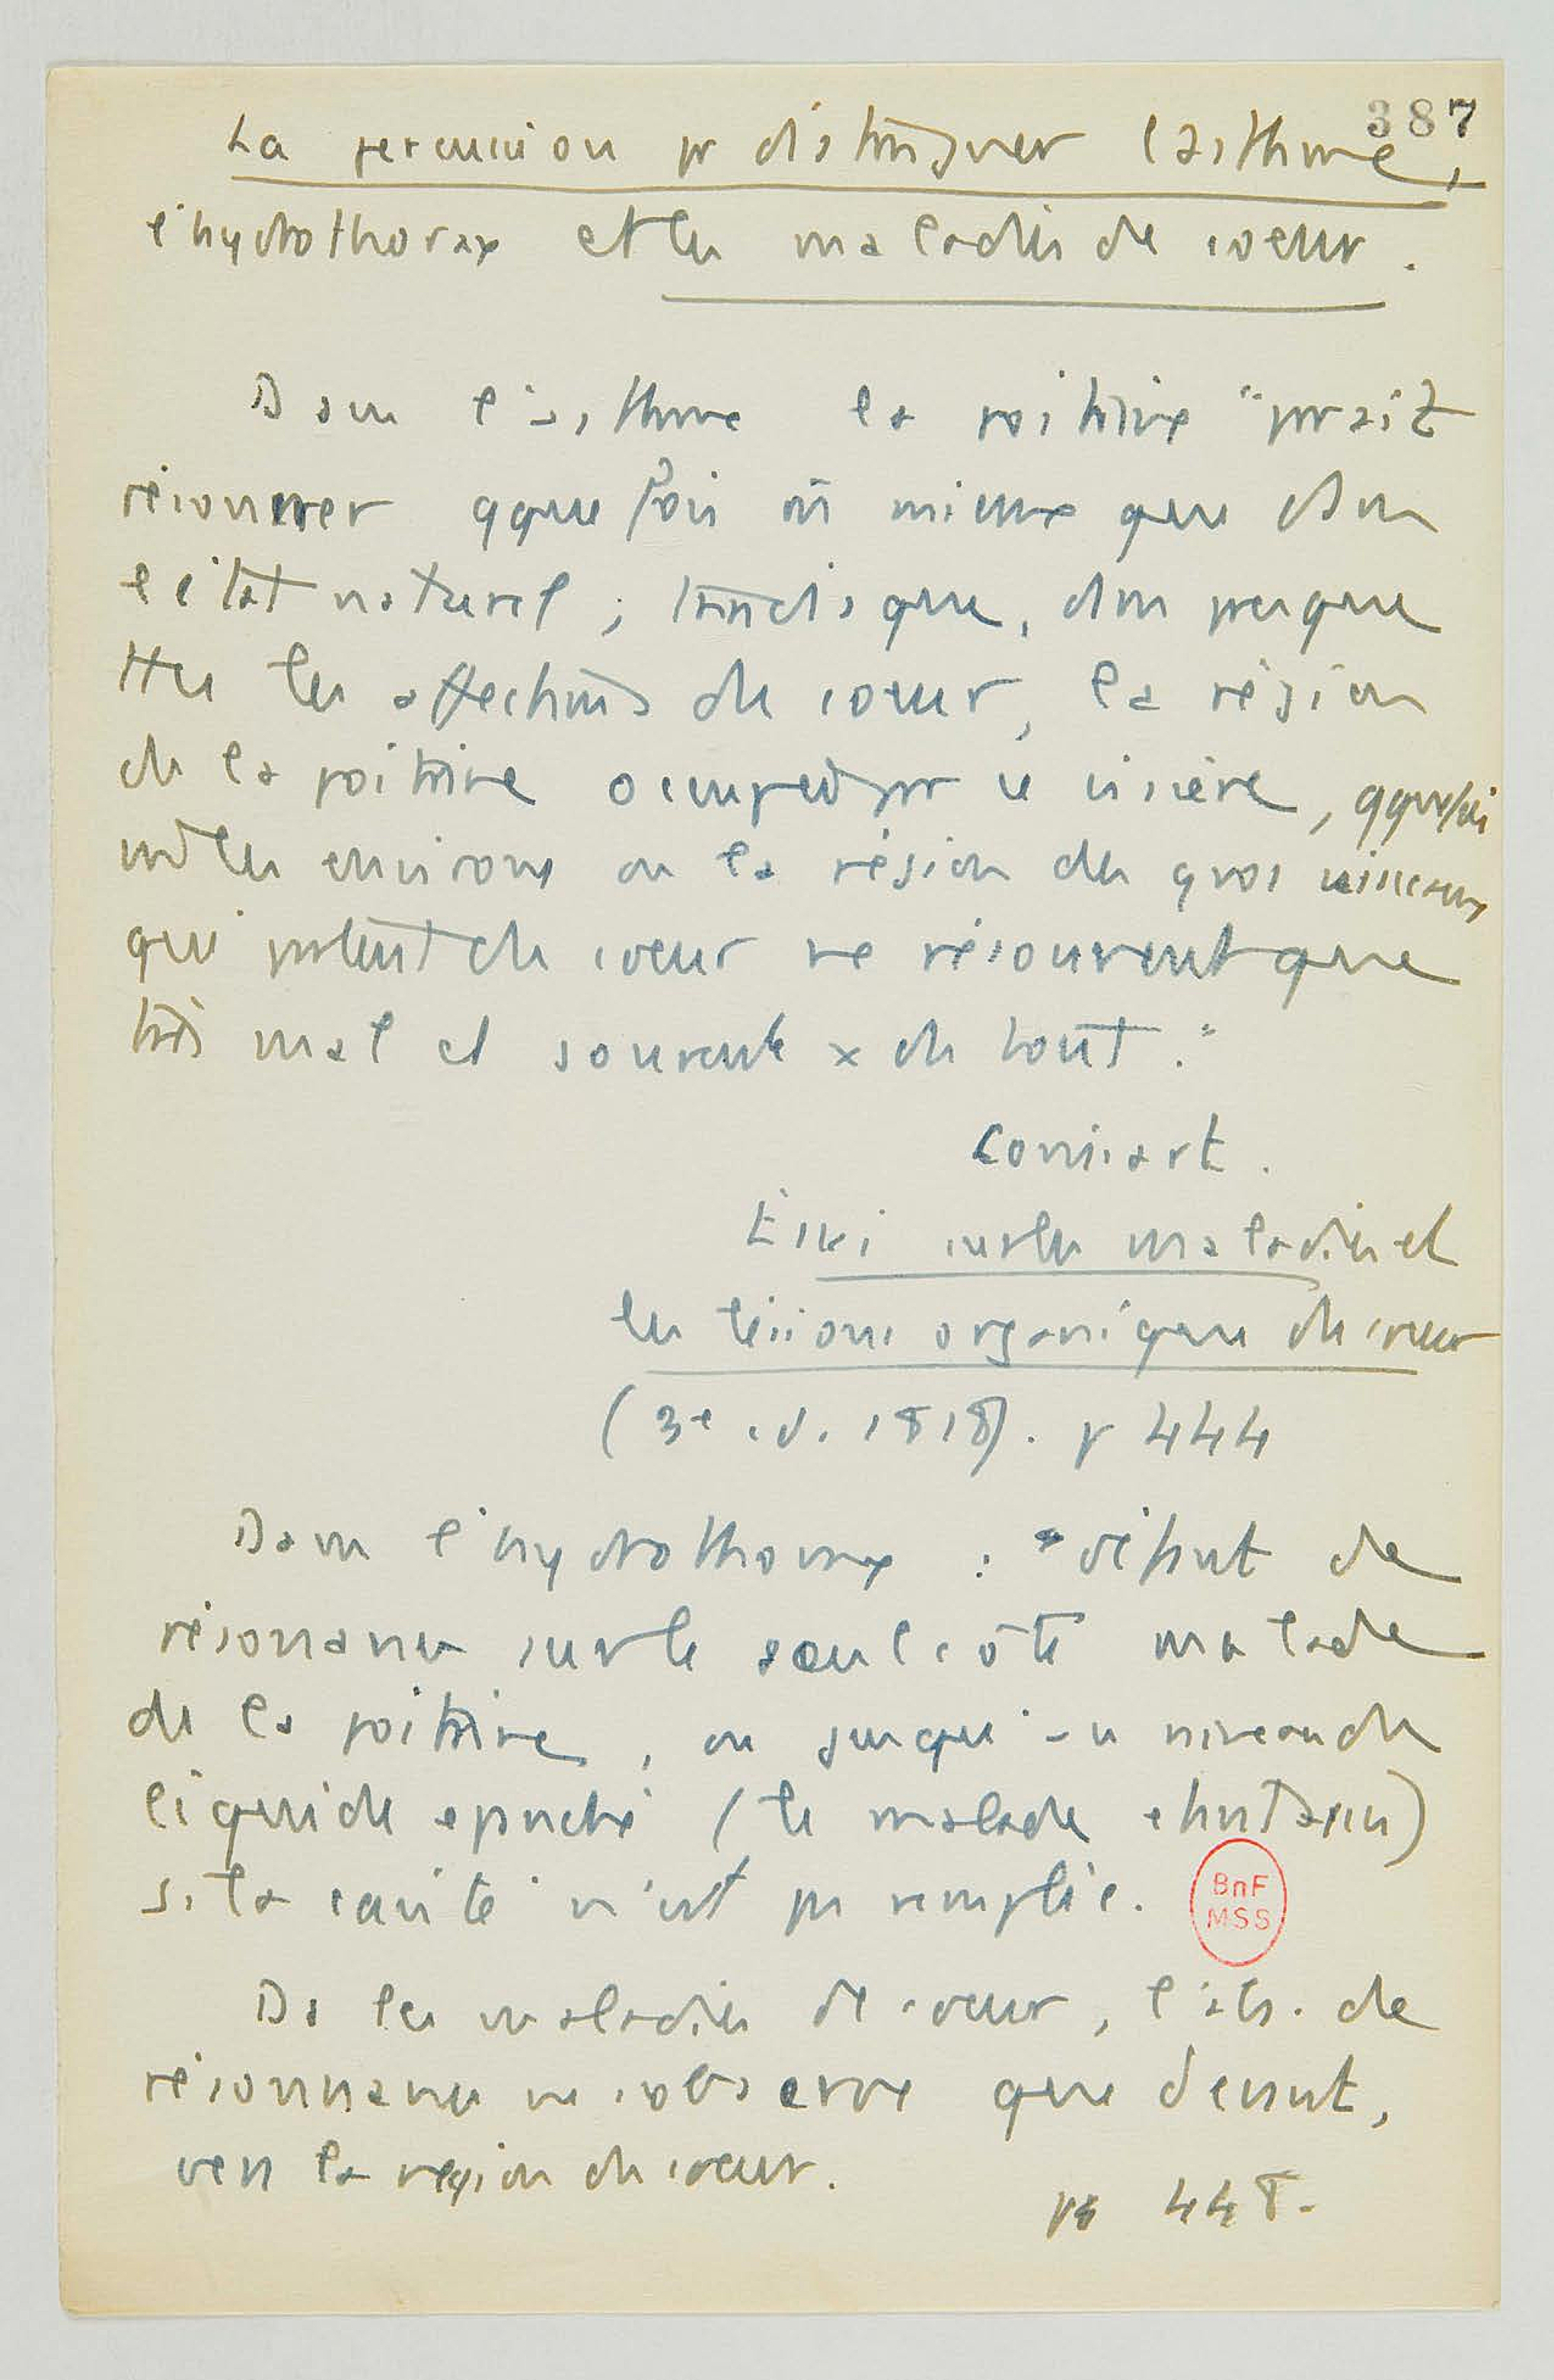 387
La percussion pr distinguer l'asthme,
l'hydrothorax et les maladies de coeur.
Dans l'asthme la poitrine "paraît
résonner qquefois mieux que dans
l'état naturel ; tandis que, dans presque
ttes les affections du coeur, la région
de la poitrine occupée par ce viscère, qquefois
même les environs ou la région des gros vaisseaux
qui partent du coeur ne résonnent que
très mal et souvent x du tout."
Corvisart.
Essai sur les maladies et
les lésions organiques du coeur
(3e éd. 1818). p 444
Dans l'hydrothorax : "défaut de
résonance sur le seul côté malade
de la poitrine, ou jusqu'au niveau du
liquide épanché (le malade étant assis)
si la cavité n'est pas remplie.
BnF
MSS
Ds les maladies de coeur, l'abs. de
résonnance ne s'observe que devant,
vers la région du coeur.
p 448.